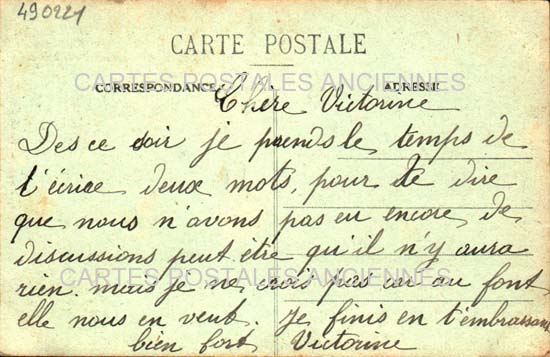 490221
CARTE POSTALE
CARTES POSTALES ANCIENNES
CORRESPONDANCE
ADRESSE
Chère Victorine
Des ce soir je prends le temps de
t'écrire deux mots, pour te dire
que nous n'avons pas eu encore de
discussions peut être qu'il n'y aura
rien. mais je ne crois pas car au font
CARTES POSTALES ANCIENNES
elle nous en veut. Je finis en t'embrassant
bien fort Victorine